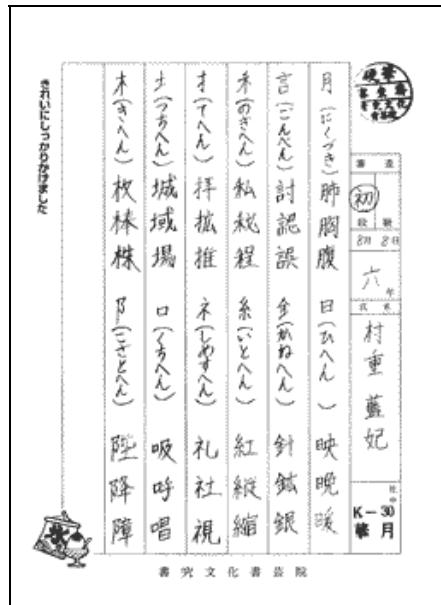 硬筆
審査
初
段 級
8月 8日
六年
氏名
村重藍妃
社中
K-30
華月
月(にくづき)肺胸腹 日(ひへん)映晩暖
言(ごんべん)討認誤 金(かねへん)針鉱銀
禾(のぎへん)私税程 糸(いとへん)紅縦縮
扌(てへん)拝拡推 ネ(しめすへん)礼社視
土(つちへん)城域場 口(くちへん)吸呼唱
木(きへん)枚棒株 阝(こざとへん)陛降障
きれいにしっかりかけました
氷
書究文化書芸院